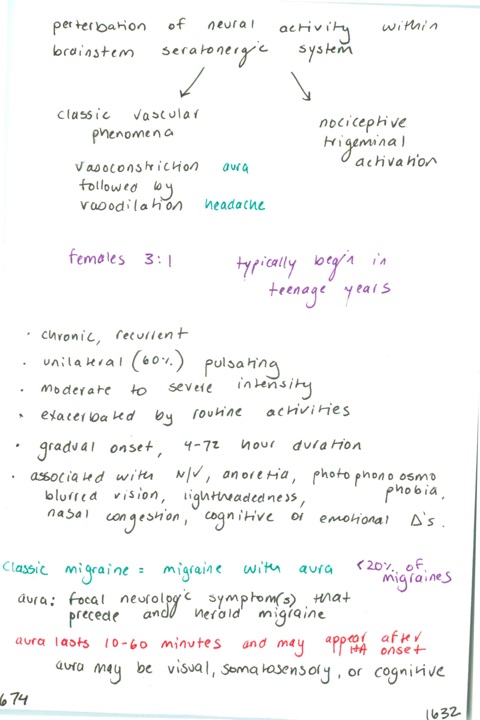 perterbation of neural activity within
brainstem seratonergic system
classic vascular
phenomena
nociceptive
trigeminal
activation
vasoconstriction aura
followed by
vasodilation headache
females 3:1
typically begin in
teenage years
· chronic, recurrent
· unilateral (60%) pulsating
· moderate to severe intensity
· exacerbated by routine activities
· gradual onset, 4-72 hour duration
· associated with N/V, anoretia, photo phono osmo
phobia,
blurred vision, lightheadedness,
nasal congestion, cognitive or emotional Δ's.
Classic migraine = migraine with aura <20% of
migraines
aura: focal neurologic symptom(s) that
precede and herald migraine
aura lasts 10-60 minutes and may appear after
HA onset
aura may be visual, somatosensory, or cognitive
674
1632